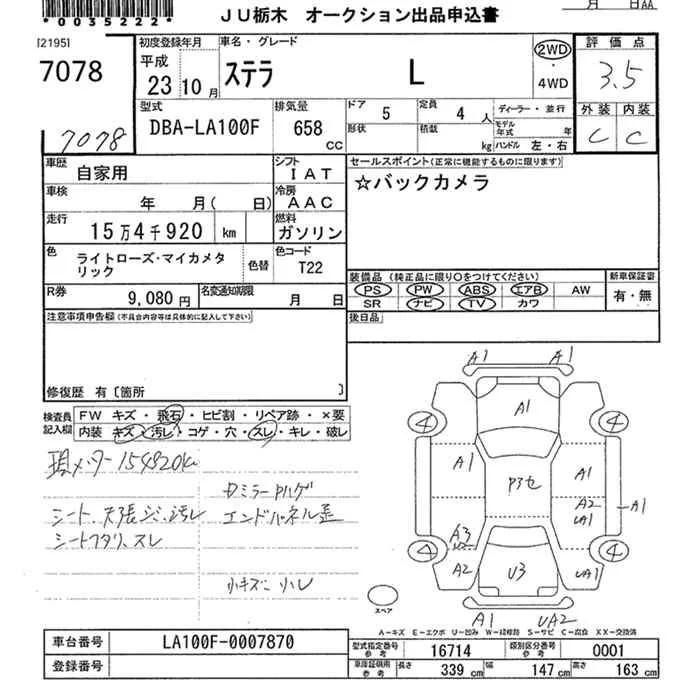 *0035222*
JU栃木 オークション出品申込書
月 日AA
[2195]
7078
7078
初度登録年月
平成
23 10 月
車名・グレード
ステラ L
2WD
・
4WD
評価点
3.5
外装 内装
C C
型式
DBA-LA100F
排気量
658 CC
ドア 5
定員 4 人
形状
積載 kg
ディーラー・並行
モデル年式 年
ハンドル 左・右
車歴
自家用
シフト
IAT
車検
年 月( 日)
冷房
AAC
走行
15万4千920 km
燃料
ガソリン
色
ライトローズ・マイカメタリック
色替
色コード
T22
R券
9,080円
名変通知期限
月 日
セールスポイント(正常に機能するものに限ります)
☆バックカメラ
装備品(純正品に限り○をつけてください)
PS PW ABS エアB AW
SR ナビ TV カワ
新車保証書
有・無
後日品
注意事項申告欄(不具合内容等は具体的に記入して下さい)
修復歴 有〔箇所 〕
検査員記入欄
FW キズ・飛石・ヒビ割・リペア跡・×要
内装 キズ・汚レ・コゲ・穴・スレ・キレ・破レ
現メーター154920km
シート、天張シミ汚レ
シートヘタリ、スレ
ミラーPハゲ
エンドパネル歪
小キズ 小凹
A1 A1
A1
4 4
A1 P3セ A1
A2
UA1
A1
A3
A2 U3 UA1
4 4
A1 UA2
スペア
A-キズ E-エクボ U-凹み W-補修跡 S-サビ C-腐食 XX-交換済
車台番号 LA100F-0007870
登録番号
型式指定番号 参考 16714
類別区分番号 参考 0001
車庫証明用 参考 長さ 339 cm 幅 147 cm 高さ 163 cm